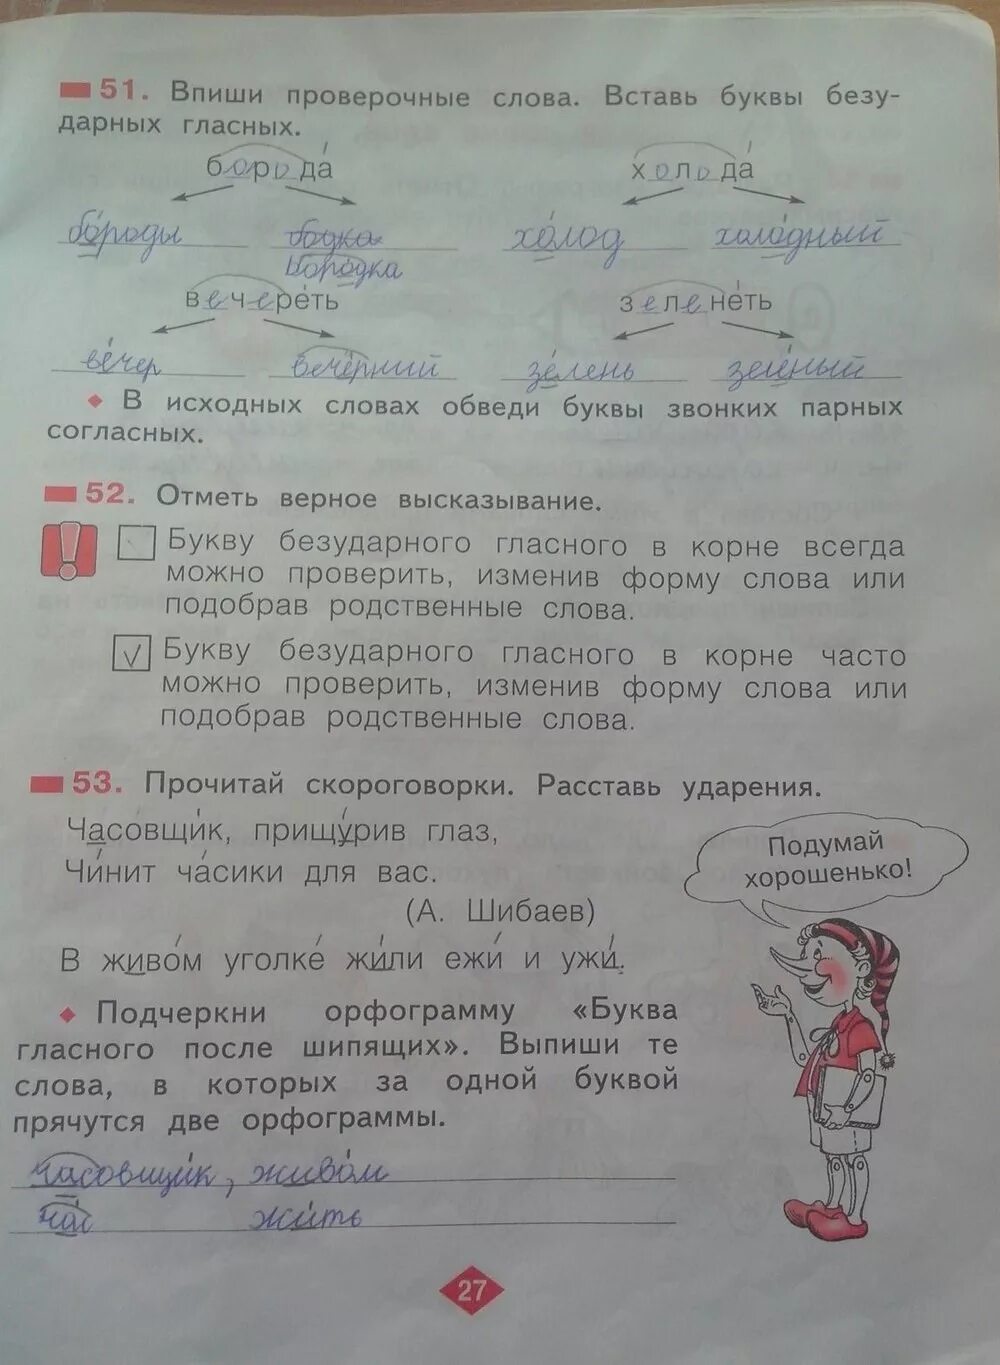 51. Впиши проверочные слова. Вставь буквы безу-
дарных гласных.
борода́ холода́
бо́роды бодка хо́лод холо́дный
боро́дка
вечере́ть зелене́ть
ве́чер вече́рний зе́лень зелёный
В исходных словах обведи буквы звонких парных
согласных.
52. Отметь верное высказывание.
Букву безударного гласного в корне всегда
можно проверить, изменив форму слова или
подобрав родственные слова.
√ Букву безударного гласного в корне часто
можно проверить, изменив форму слова или
подобрав родственные слова.
53. Прочитай скороговорки. Расставь ударения.
Часовщи́к, прищу́рив глаз,
Чи́нит ча́сики для вас.
(А. Шибаев)
В живо́м уголке́ жи́ли ежи́ и ужи́.
Подумай
хорошенько!
Подчеркни орфограмму «Буква
гласного после шипящих». Выпиши те
слова, в которых за одной буквой
прячутся две орфограммы.
часовщи́к, живо́м
ча́с жи́ть
27